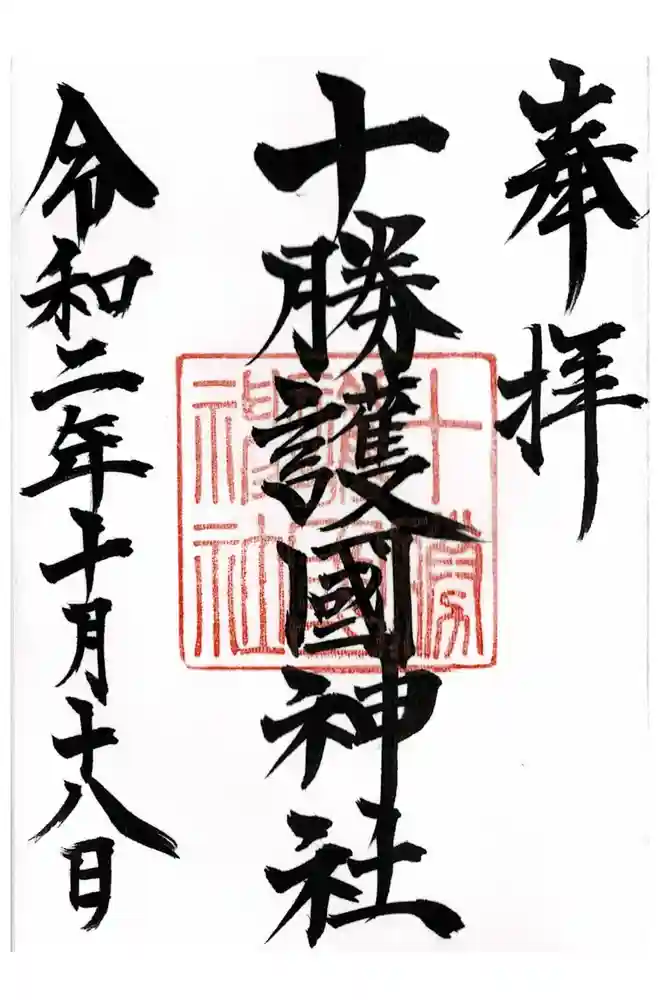 奉拝
十勝護國神社
十勝護國神社
令和二年十月十八日